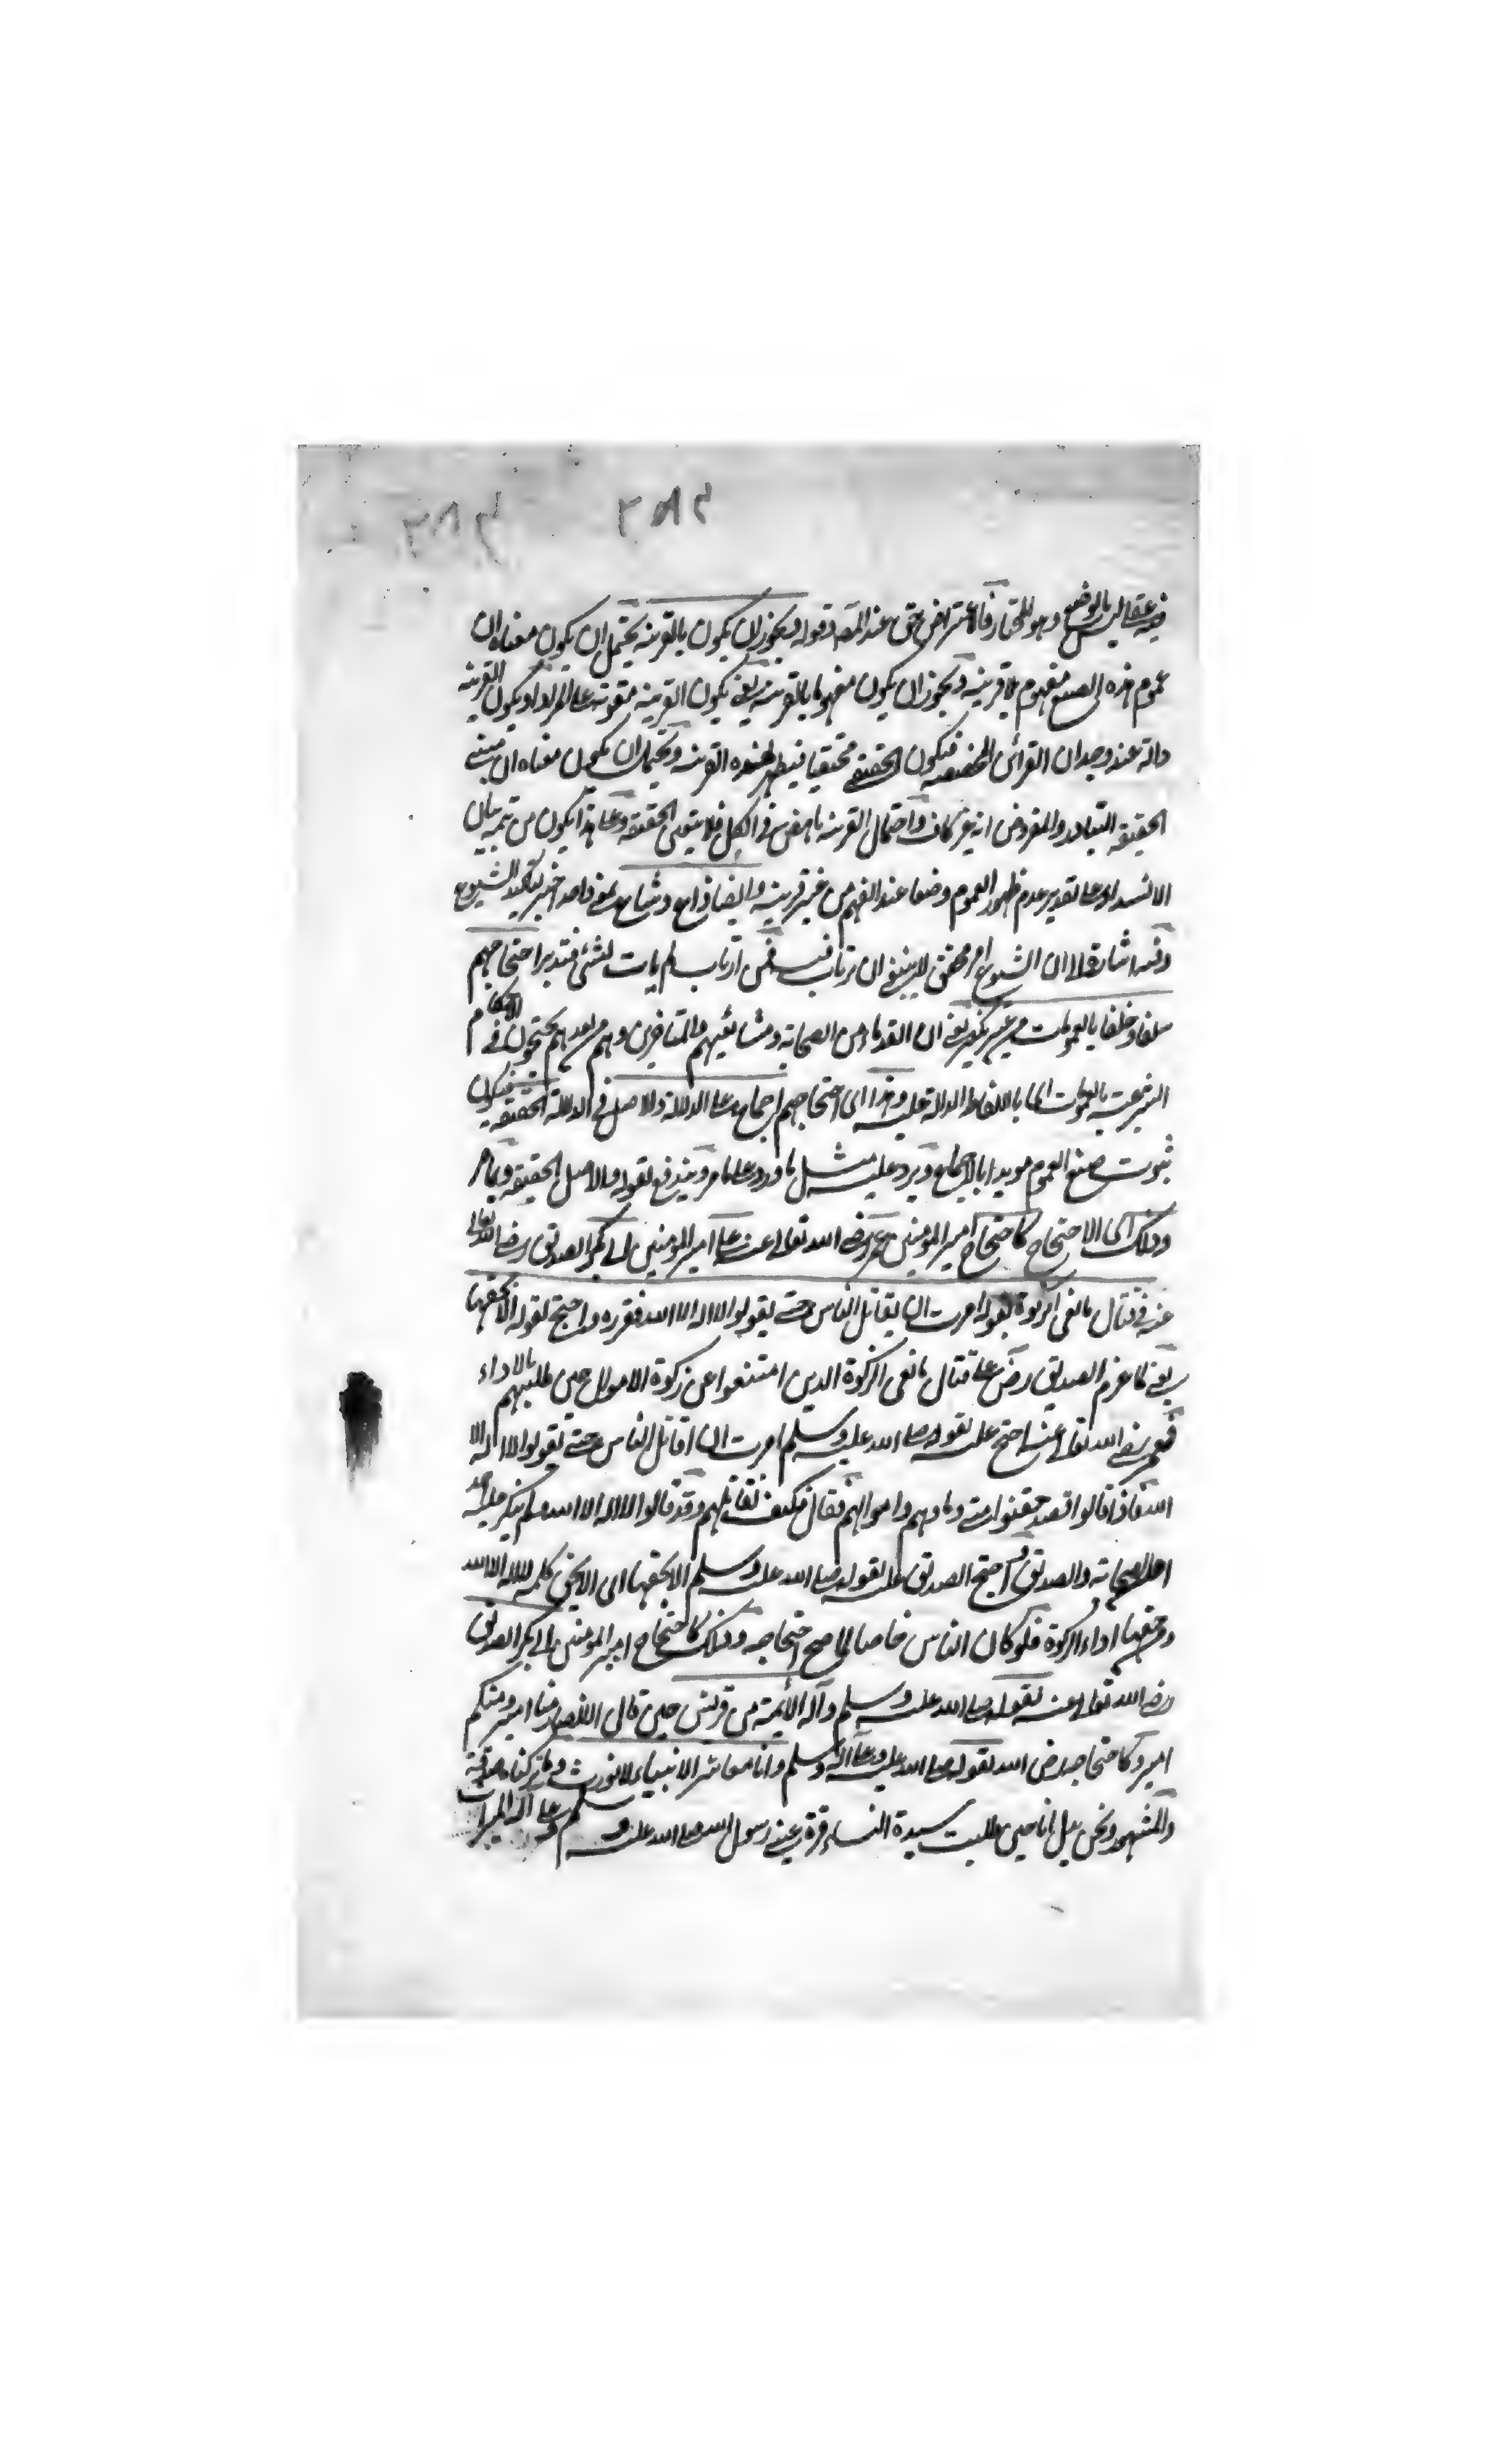 وهو المختار فالاعتراض حق عند المصـ وقوله ويجوز ان يكون بالقرينة يحتمل ان يكون معناه ان
عموم هذه الصيغ مفهوم بلا قرينة ويجوز ان يكون مفهوما بالقرينة يعني يكون القرينة على المراد او يكون القرينة
دالة عند وجدان القرائن فيكون الحقيقة القرينة ويحتمل ان يكون معناه ان مبنى
الحقيقة التبادر والمفروض انه غير كاف واحتمال القرينة ناهض في الكل فلا يتعين الحقيقة وعلى هذا يكون من تتمة بيان
الانسداد على تقدير عدم ظهور العموم وضعا عند الفهم من غير قرينة وايضا ذاع وشاع
وفيه اشارة الى ان الشيوع امر محقق لا ينبغي ان يرتاب فيه فمن ارتاب لم يات لشئ فتدبر احتجاجهم
سلفا وخلفا بالعمومات من غير نكير يعني ان القدماء من الصحابة ومشائعيهم والمتاخرين وهم من بعدهم يحتجون في الاحكام
الشرعية بالعمومات اى بالالفاظ الدالة عليه وهذا اى احتجاجهم اجماع على الدلالة والاصل في الدلالة الحقيقة فيكون
ثبوت صيغ العموم مويدا بالاجماع ويرد عليه مثل ما ورد على ما مر ويندفع بقوله والاصل الحقيقة وبما مر
وذلك اى الاحتجاج كاحتجاج امير المؤمنين عمر رضى الله تعالى عنه على امير المؤمنين ابى بكر الصديق رضى الله تعالى
عنه في قتال مانعى الزكوة بقوله امرت ان يقاتل الناس حتى يقولوا لا اله الا الله فقرره واحتج بقوله الا بحقها
يعنى لما عزم الصديق رضـ على قتال مانعى الزكوة الذين امتنعوا عن زكوة الاموال حين طلبهم بالاداء
فعمر رضى الله تعالى عنه احتج عليه بقوله صلى الله عليه وسلم امرت ان اقاتل الناس حتى يقولوا لا اله الا
الله فاذا قالوا فقد حقنوا منى دماءهم واموالهم فقال فكيف تقاتلهم وقد قالوا لا اله الا الله ولم ينكر عليه احد
اهل الصحابة والصديق واحتج الصديق عليه بقوله صلى الله عليه وسلم الا بحقها اى الا بحق كلمة لا اله الا الله
ومن حقها اداء الزكوة فلو كان الناس خاصا لما صح احتجاجه وذلك كاحتجاج امير المؤمنين ابى بكر الصديق
رضى الله تعالى عنه بقوله صلى الله عليه وسلم وآله الائمة من قريش حين قال الانصار منا امير ومنكم
امير وكاحتجاجه رضى الله بقوله صلى الله عليه وعلى آله وسلم وانا معاشر الانبياء لا نورث وما تركناه صدقة
والمشهور ونحن بدل انا حين طلبت سيدة النساء قرة عيني رسول الله صلى الله عليه وسلم وعلى آله الميراث